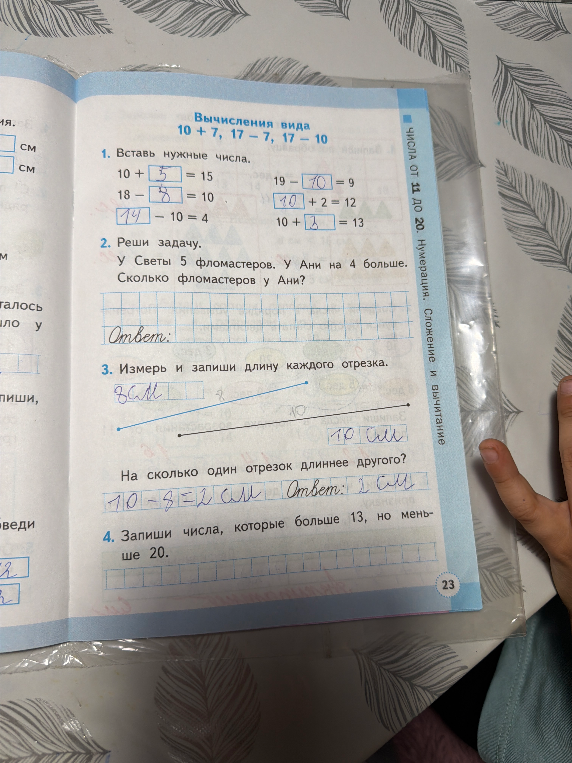 ия.
см
см
м
талось
ло у
пиши,
веди
Вычисления вида
10 + 7, 17 − 7, 17 − 10
1. Вставь нужные числа.
10 + 5 = 15
19 − 10 = 9
18 − 8 = 10
10 + 2 = 12
14 − 10 = 4
10 + 3 = 13
2. Реши задачу.
У Светы 5 фломастеров. У Ани на 4 больше.
Сколько фломастеров у Ани?
Ответ:
3. Измерь и запиши длину каждого отрезка.
8 см
8
10
10 см
На сколько один отрезок длиннее другого?
10 − 8 = 2 см Ответ: 2 см
4. Запиши числа, которые больше 13, но мень-
ше 20.
23
ЧИСЛА ОТ 11 ДО 20. Нумерация. Сложение и вычитание